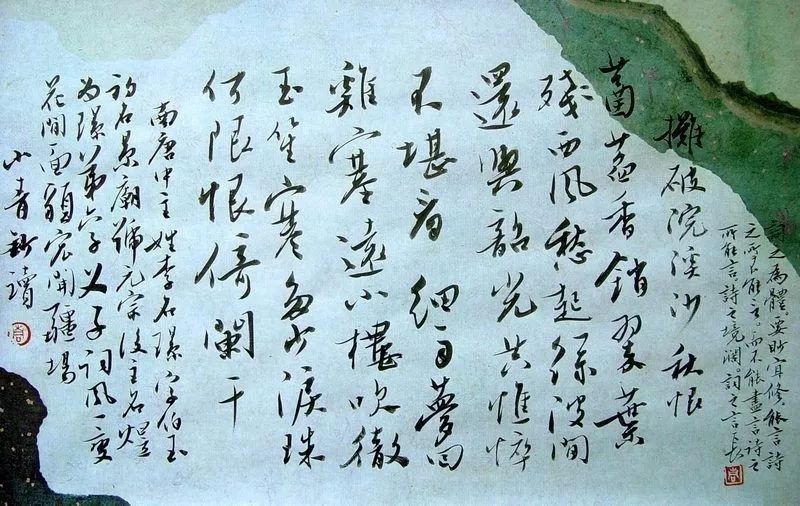 詞之為體。要眇宜修。能言詩
之所不能言。而不能盡言詩之
所能言。詩之境闊。詞之言長。
攤破浣溪沙 秋恨
菡萏香銷翠葉
殘西風愁起綠波間
還與韶光共憔悴
不堪看細雨夢回
雞塞遠小樓吹徹
玉笙寒多少淚珠
何限恨倚闌干
南唐中主姓李名璟字伯玉
初名景廟號元宗後主名煜
为璟第六子父子詞風一變
花間面貌宏開疆場
小青